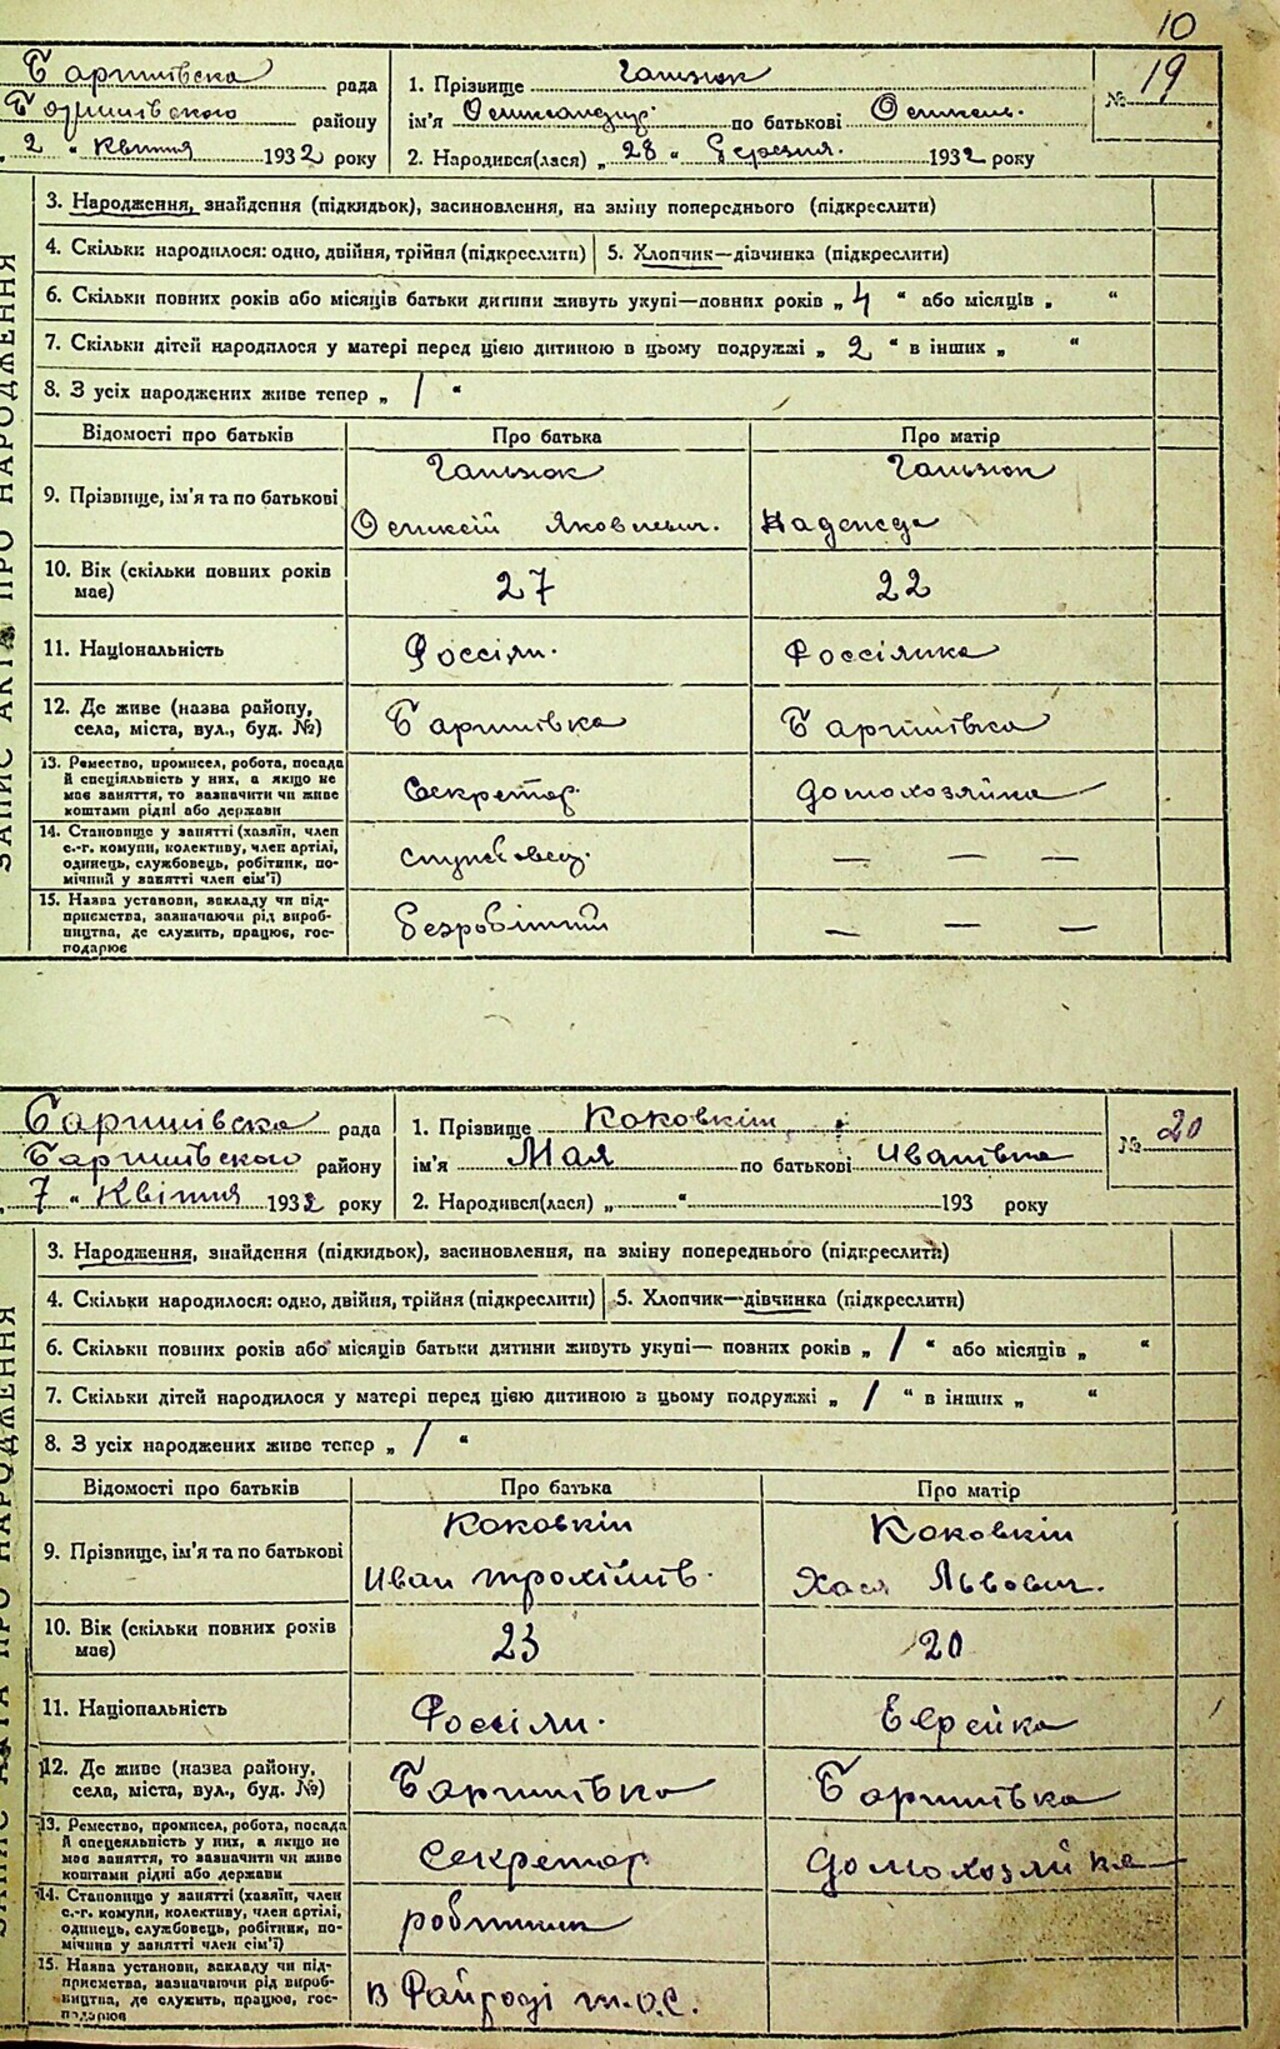 10
Баришівська рада
Баришівського району
„ 2 “ Квітня 1932 року
1. Прізвище
ім'я по батькові Олексій.
2. Народився(лася) „ 28 “ Березня. 1932 року
№ 19
ЗАПИС АКТА ПРО НАРОДЖЕННЯ
3. Народження, знайдення (підкидьок), засиновлення, на зміну попереднього (підкреслити)
4. Скільки народилося: одно, двійня, трійня (підкреслити) 5. Хлопчик—дівчинка (підкреслити)
6. Скільки повних років або місяців батьки дитини живуть укупі—повних років „ 4 “ або місяців „ “
7. Скільки дітей народилося у матері перед цією дитиною в цьому подружжі „ 2 “ в інших „ “
8. З усіх народжених живе тепер „ 1 “
Відомості про батьків Про батька Про матір
9. Прізвище, ім'я та по батькові
Олексій Яковлевич. Надежда
10. Вік (скільки повних років має) 27 22
11. Національність Россіян. Россіянка
12. Де живе (назва району, села, міста, вул., буд. №) Баришівка Баришівка
13. Ремество, промисел, робота, посада й спеціяльність у них, а якщо не має заняття, то зазначити чи живе коштами рідні або держави Секретар. домохозяйка
14. Становище у занятті (хазяїн, член с.-г. комуни, колективу, член артілі, одинець, службовець, робітник, помічний у занятті член сім'ї) службовец. — — —
15. Назва установи, закладу чи підприємства, зазначаючи рід виробництва, де служить, працює, господарює безробітний — — —
Баришівська рада
Баришівського району
„ 7 “ Квітня 1932 року
1. Прізвище Коковкін
ім'я Мая по батькові Иванівна
2. Народився(лася) „ “ 193 року
№ 20
ЗАПИС АКТА ПРО НАРОДЖЕННЯ
3. Народження, знайдення (підкидьок), засиновлення, на зміну попереднього (підкреслити)
4. Скільки народилося: одно, двійня, трійня (підкреслити) 5. Хлопчик—дівчинка (підкреслити)
6. Скільки повних років або місяців батьки дитини живуть укупі— повних років „ 1 “ або місяців „ “
7. Скільки дітей народилося у матері перед цією дитиною в цьому подружжі „ 1 “ в інших „ “
8. З усіх народжених живе тепер „ 1 “
Відомості про батьків Про батька Про матір
Коковкін Коковкін
9. Прізвище, ім'я та по батькові
Иван Трохімів. Хася Львовн.
10. Вік (скільки повних років має) 23 20
11. Національність Россіян. Еврейка
12. Де живе (назва району, села, міста, вул., буд. №) Баришівка Баришівка
13. Ремество, промисел, робота, посада й спецеяльність у них, а якщо не має заняття, то зазначити чи живе коштами рідні або держави Секретар. домохозяйка
14. Становище у занятті (хазяїн, член с.-г. комуни, колективу, член артілі, одинець, службовець, робітник, помічний у занятті член сім'ї) робітник
15. Назва установи, закладу чи підприємства, зазначаючи рід виробництва, де служить, працює, господарює в Райраді